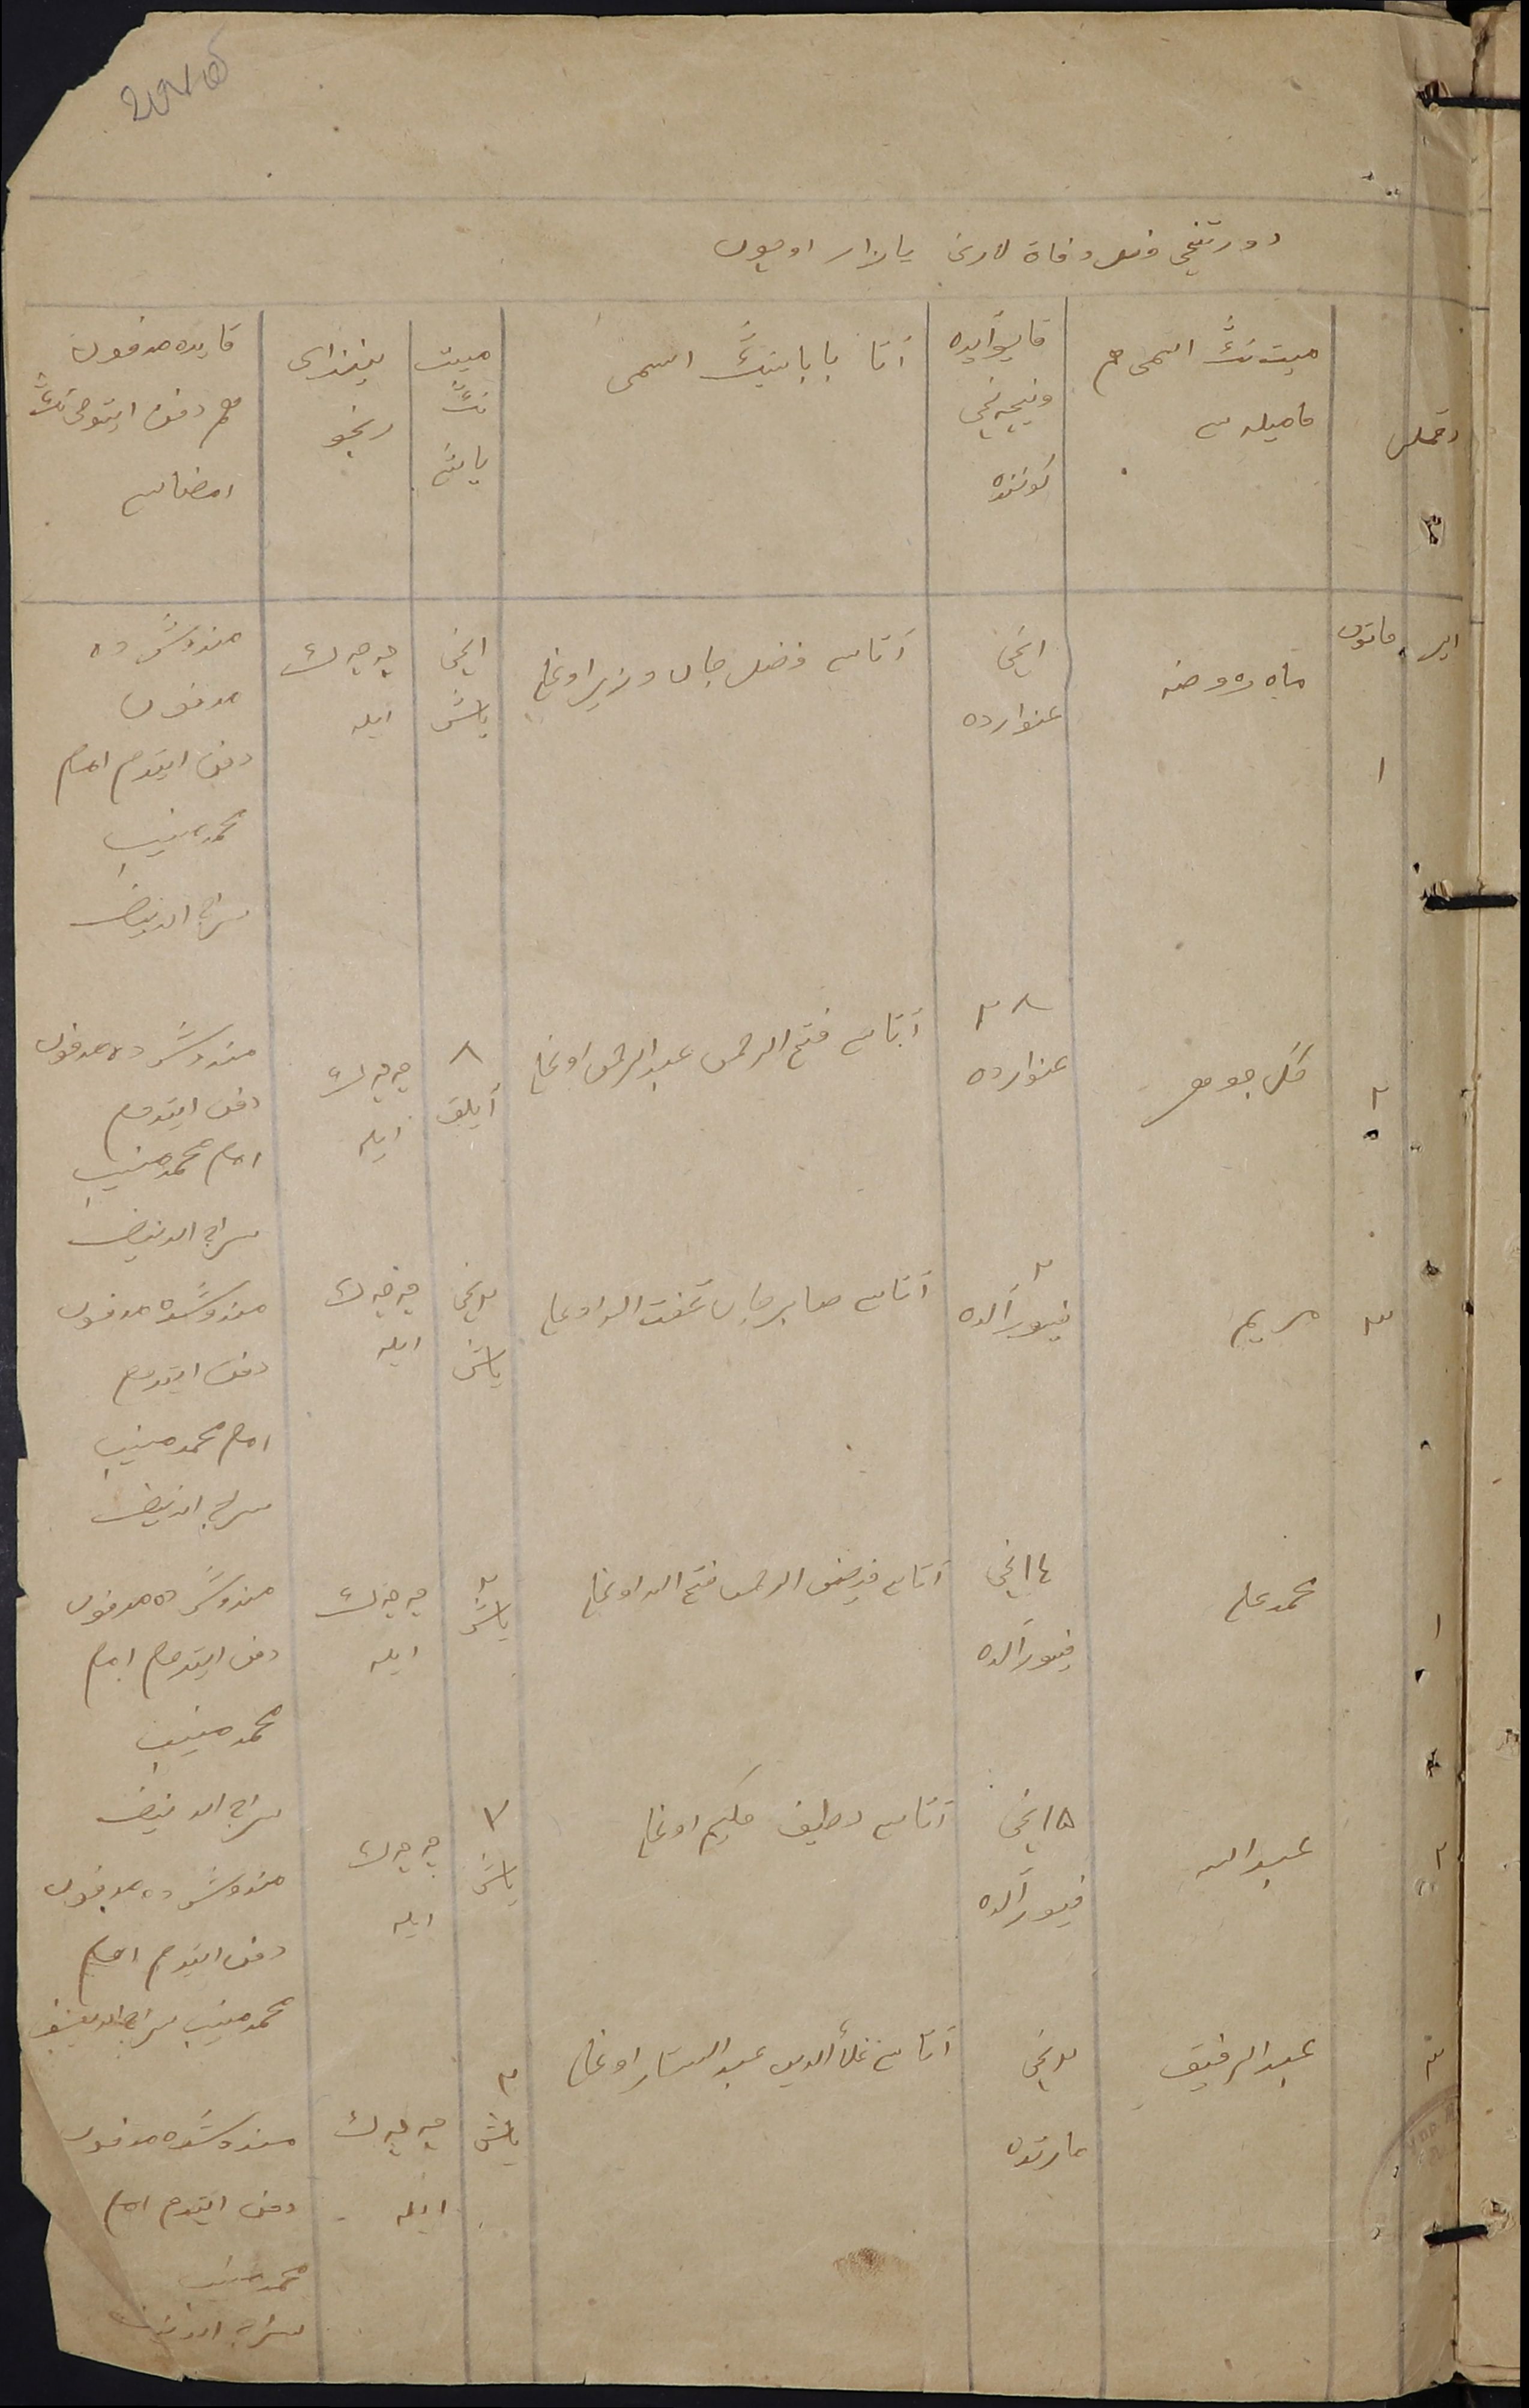 دورتنچی قسم وفاة لارنی یازار اوچون
رقملر
میت ننڭ اسمی هم
فامیله سی
قایو آیده
ونیچه نچی
کوننده
آتا بابا سینڭ اسمی
میت
ننڭ
یاشی
نیندای
رنجو
قایده مدفون
هم دفن ایتوچی ننڭ
امضاسی
ایر
خاتون
۱
ماه روضه
۱نچی
غنوارده
آتاسی فضل جان وزیر اوغلی
۱نچی
یاش
چەچەك
ایله
مندوش ده
مدفون
دفن ایتدم امام
محمد منیب
سراج الدینف
۲
گل جوهر
۲۸
غنوارده
آتاسی فتح الرحمن عبد الرحمن اوغلی
۸
آیلق
چەچەك
ایله
مندوش ده مدفون
دفن ایتدم
امام محمد منیب
سراج الدینف
۳
مریم
۲
فیورالده
آتاسی صابرجان نعمت الله اوغلی
۲نچی
یاش
چەچەك
ایله
مندوشده مدفون
دفن ایتدم
امام محمد منیب
سراج الدینف
۱
محمد علی
۱٤نچی
فیورالده
آتاسی فیض الرحمن فتح الله اوغلی
۲
یاش
چەچەك
ایله
مندوش ده مدفون
دفن ایتدم امام
محمد منیب
سراج الدینف
۲
عبد الله
۱۵نچی
فیورالده
آتاسی لطیف حکیم اوغلی
۲
یاش
چەچەك
ایله
مندوش ده مدفون
دفن ایتدم امام
محمد منیب سراج الدینف
۳
عبد الرفیق
۲نچی
مارتده
آتاسی علاء الدین عبد الستار اوغلی
۳
یاش
چەچەك
ایله
مندوشده مدفون
دفن ایتدم امام
محمد منیب
سراج الدینف